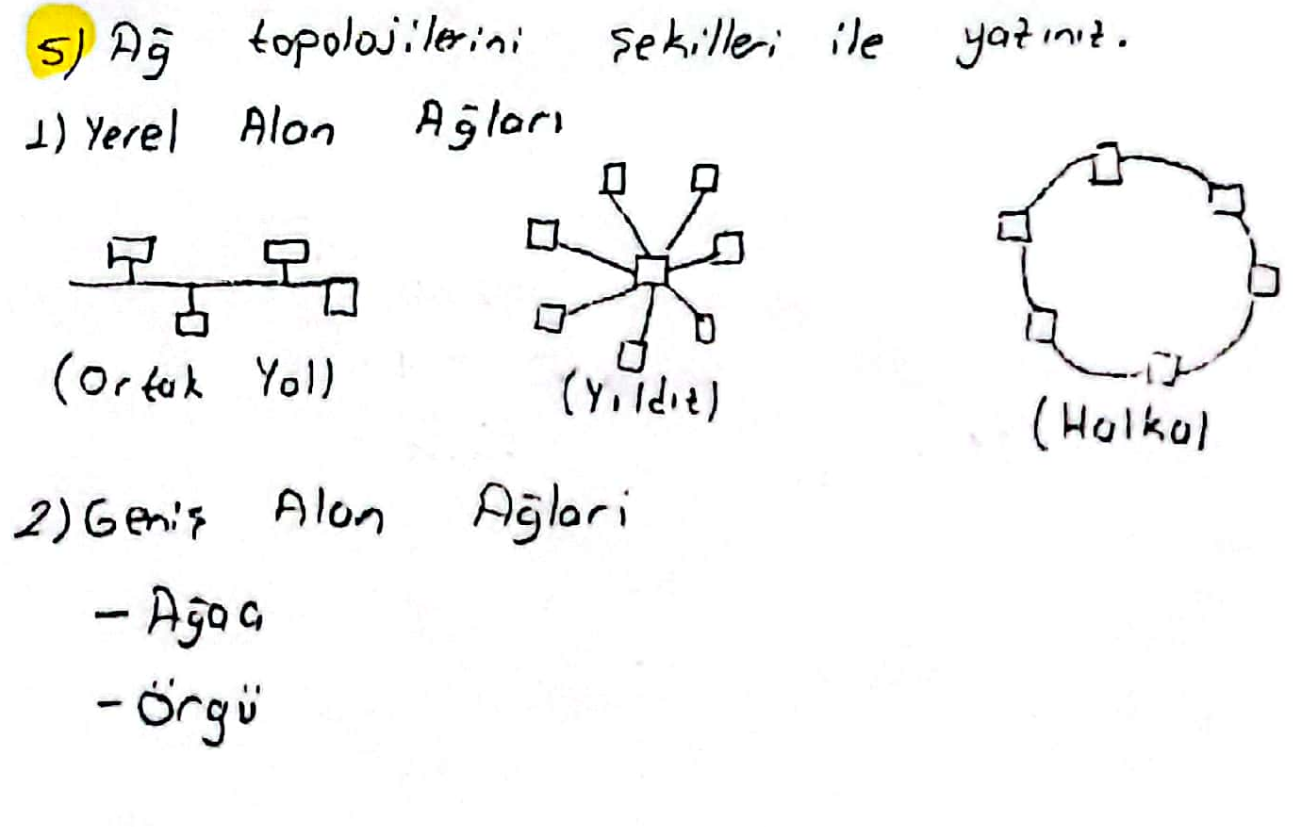 5) Ağ topolojilerini şekilleri ile yazınız.
1) Yerel Alan Ağları
(Ortak Yol) (Yıldız) (Halka)
2) Geniş Alan Ağlari
- Ağaç
- Örgü